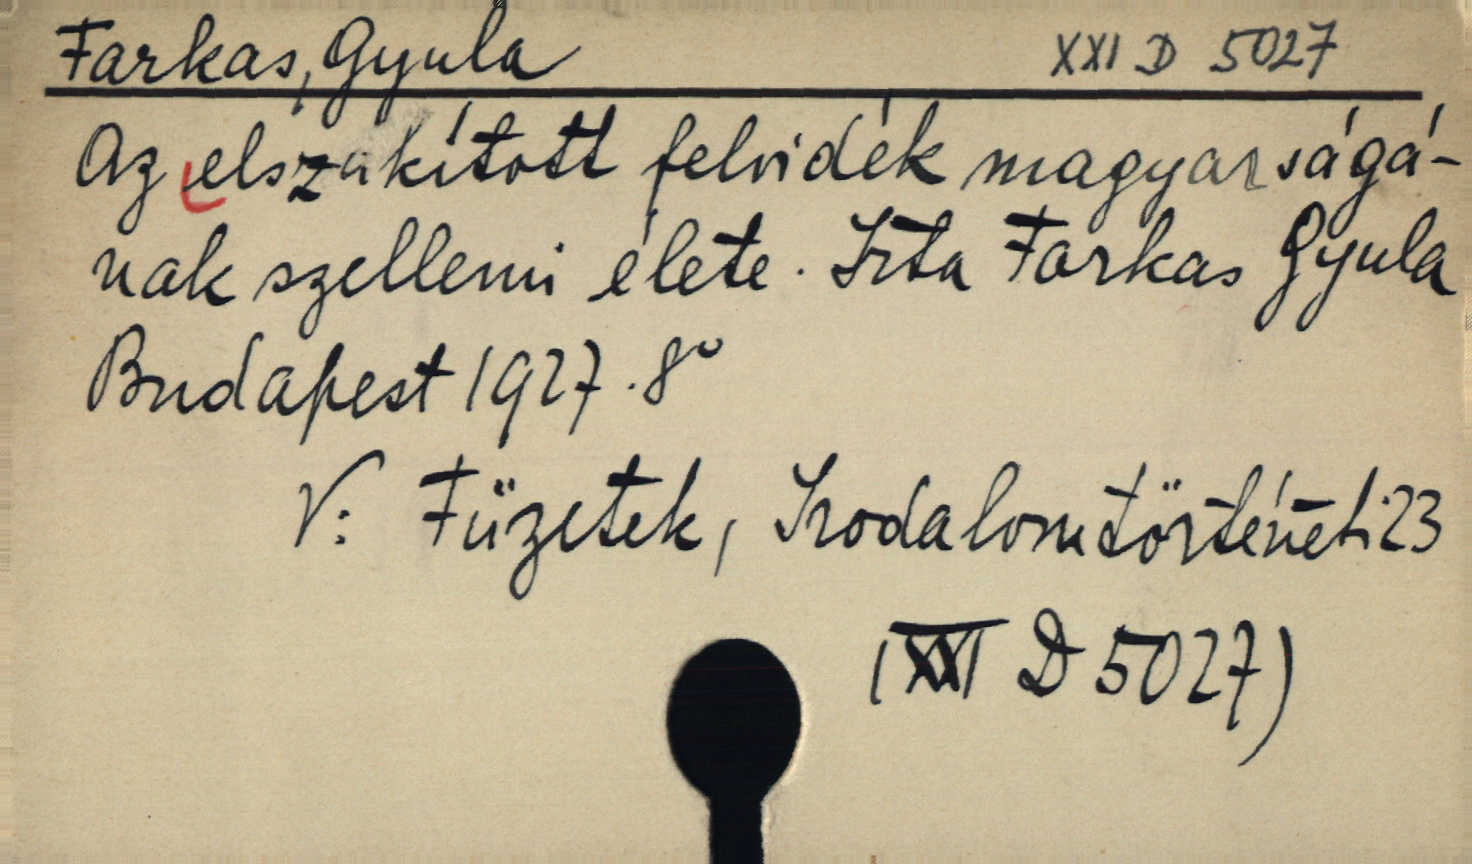 Farkas, Gyula XXI D 5027
Az elszakított felvidék magyarságá-
nak szellemi élete. Irta Farkas Gyula
Budapest 1927. 8°
V: Füzetek, Irodalomtörténeti 23
(XXI D 5027)